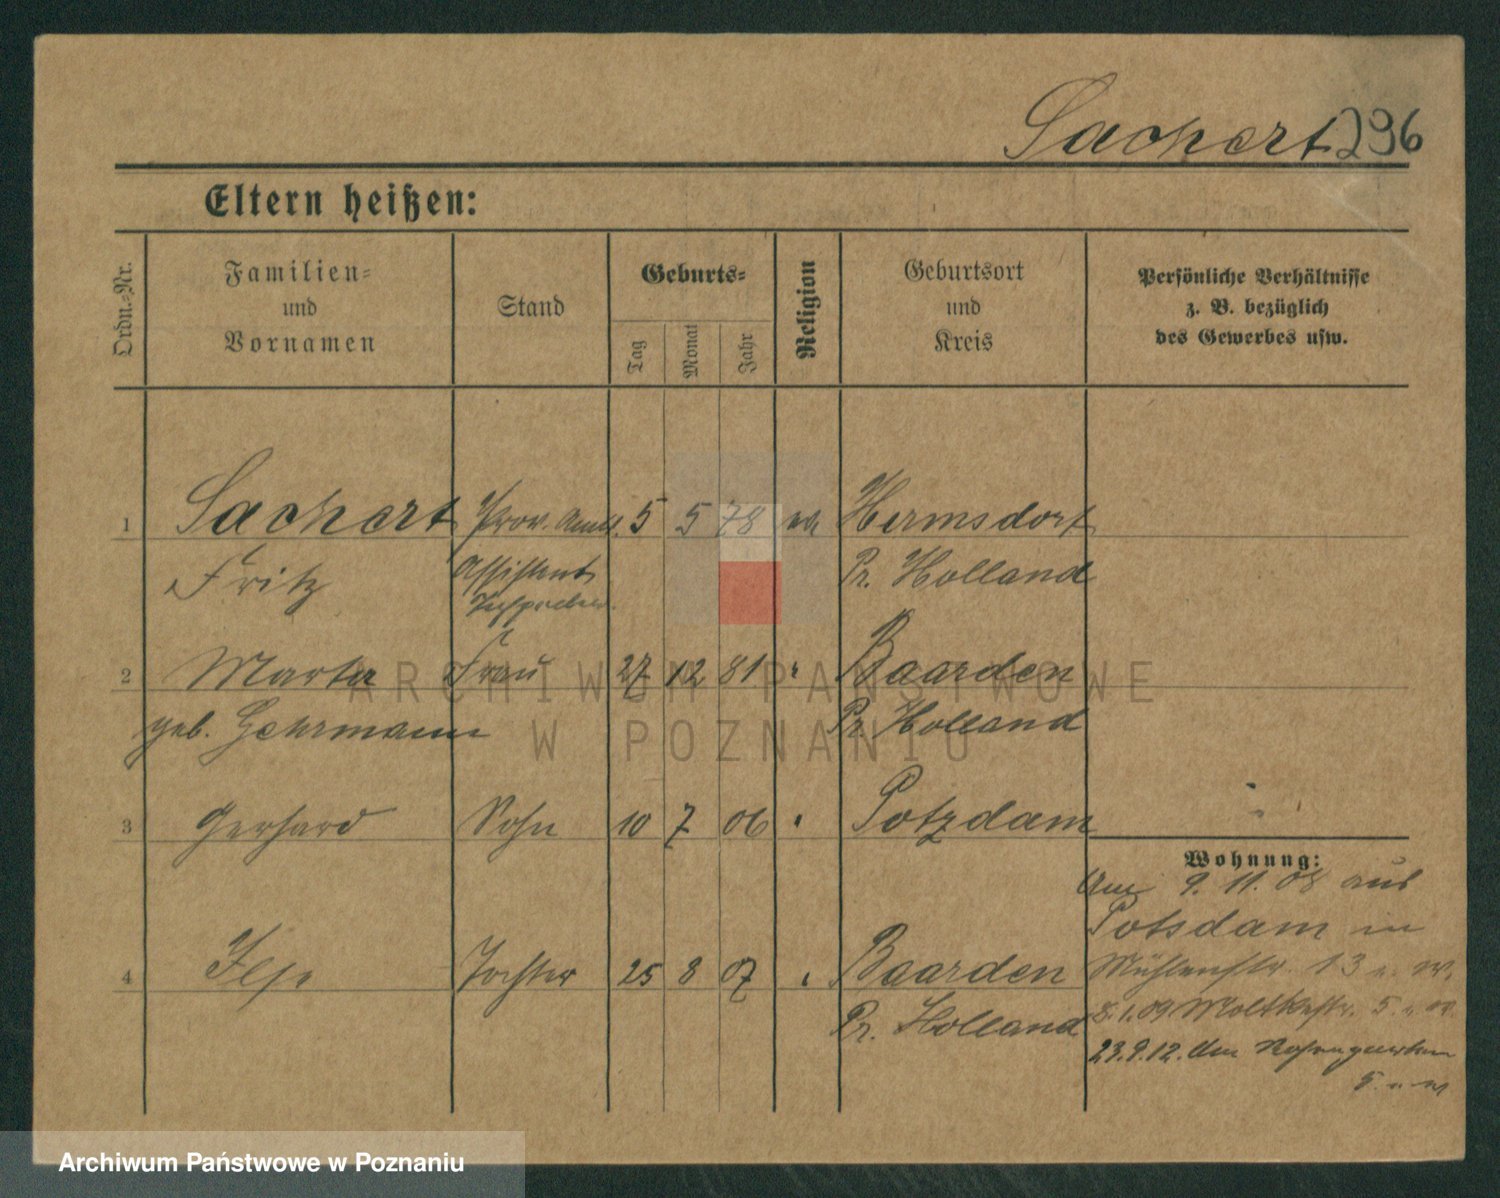 Sachert 296
Eltern heißen:
Ordn.-Nr.
Familien-
und
Vornamen
Stand
Geburts-
Tag
Monat
Jahr
Religion
Geburtsort
und
Kreis
Persönliche Verhältnisse
z. B. bezüglich
des Gewerbes usw.
1 Sachert Prov. Amts. 5 5 78 ev Hermsdorf
Fritz Assistent Pr. Holland
2 Marta Frau 27 12 81 " Baarden
geb. Gehrmann Pr. Holland
3 Gerhard Sohn 10 7 06 " Potzdam
Wohnung:
Am 9. 11. 08 aus
Potsdam in
4 Ilse Tochter 25 8 07 " Baarden
Mühlenstr. 13 u. w.
Pr. Holland
8.1.09 Moltkestr. 5. u. w.
23.9.12. Am Rosengarten
5. u. w
ARCHIWUM PAŃSTWOWE
W POZNANIU
Archiwum Państwowe w Poznaniu